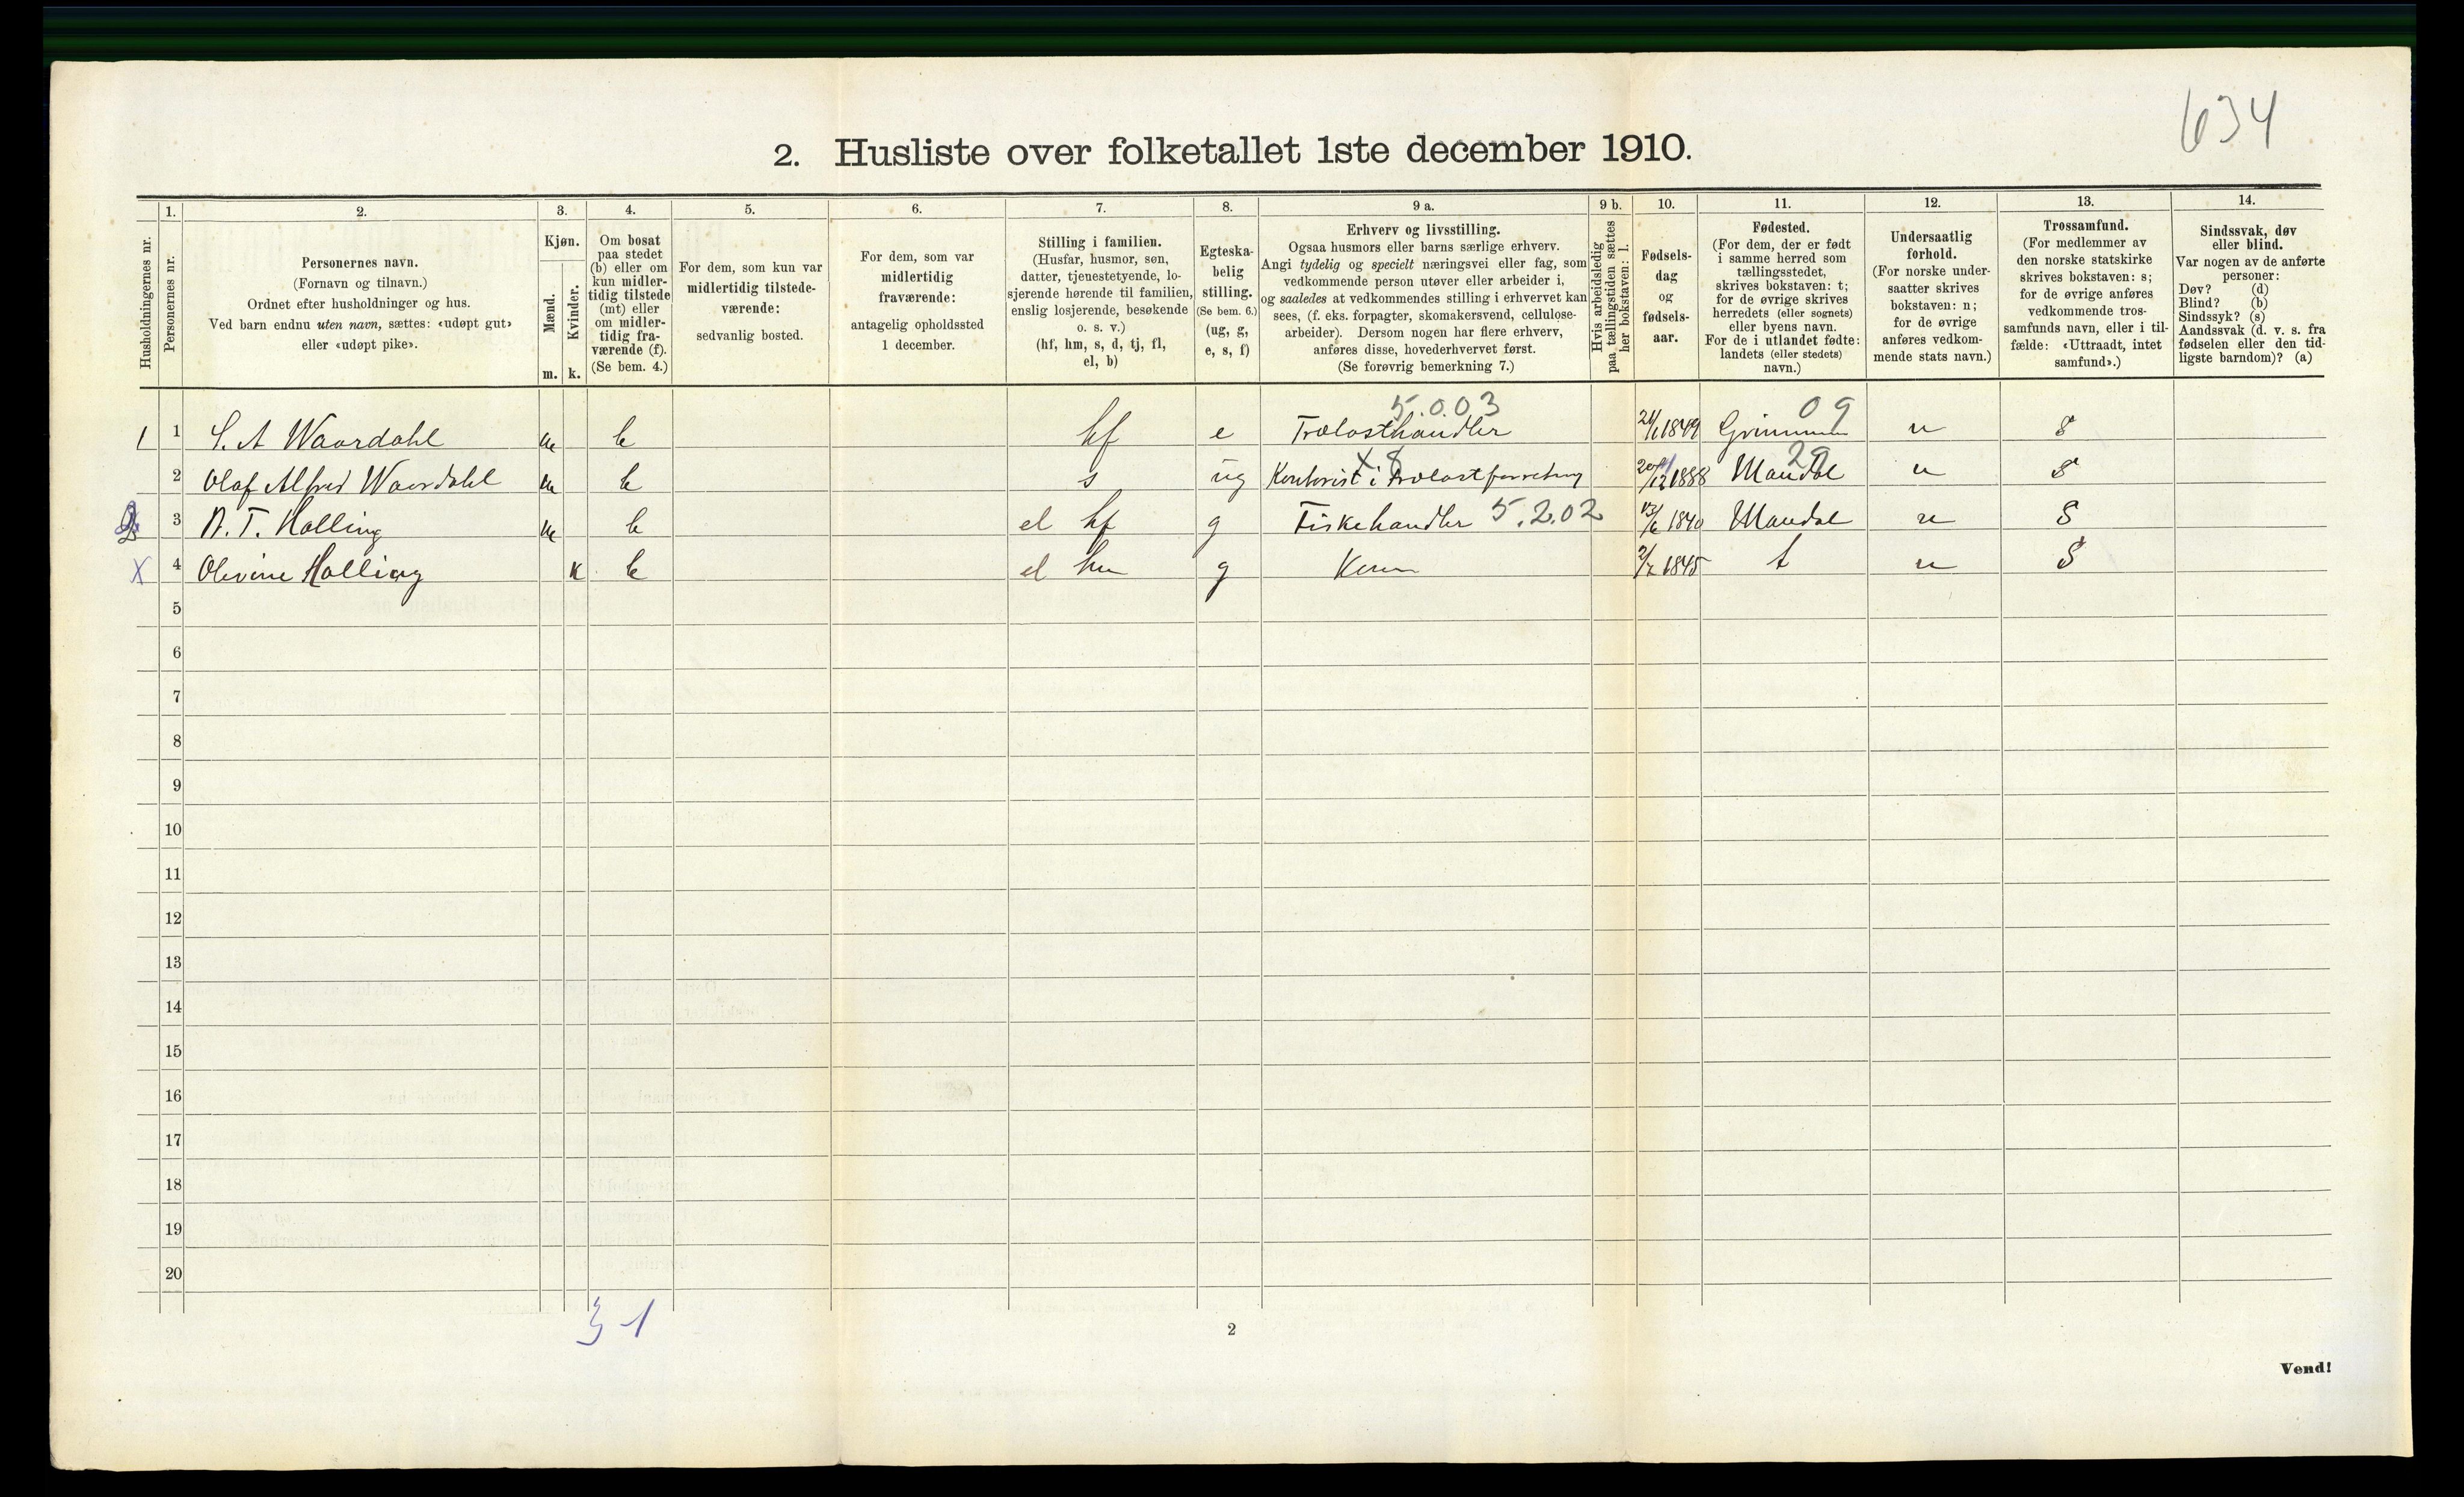 634
2. Husliste over folketallet 1ste december 1910.
1. 2. 3. 4. 5. 6. 7. 8. 9 a. 9 b. 10. 11. 12. 13. 14.
Husholdningernes nr.
Personernes nr.
Personernes navn.
(Fornavn og tilnavn.)
Ordnet efter husholdninger og hus.
Ved barn endnu uten navn, sættes: «udøpt gut»
eller «udøpt pike».
Kjøn.
Mænd.
Kvinder.
m. k.
Om bosat
paa stedet
(b) eller om
kun midler-
tidig tilstede
(mt) eller
om midler-
tidig fra-
værende (f).
(Se bem. 4.)
For dem, som kun var
midlertidig tilstede-
værende:
sedvanlig bosted.
For dem, som var
midlertidig
fraværende:
antagelig opholdssted
1 december.
Stilling i familien.
(Husfar, husmor, søn,
datter, tjenestetyende, lo-
sjerende hørende til familien,
enslig losjerende, besøkende
o. s. v.)
(hf, hm, s, d, tj, fl,
el, b)
Egteska-
belig
stilling.
(Se bem. 6.)
(ug, g,
e, s, f)
Erhverv og livsstilling.
Ogsaa husmors eller barns særlige erhverv.
Angi tydelig og specielt næringsvei eller fag, som
vedkommende person utøver eller arbeider i,
og saaledes at vedkommendes stilling i erhvervet kan
sees, (f. eks. forpagter, skomakersvend, cellulose-
arbeider). Dersom nogen har flere erhverv,
anføres disse, hovederhvervet først.
(Se forøvrig bemerkning 7.)
Hvis arbeidsledig
paa tællingstiden sættes
her bokstaven: l.
Fødsels-
dag
og
fødsels-
aar.
Fødested.
(For dem, der er født
i samme herred som
tællingsstedet,
skrives bokstaven: t;
for de øvrige skrives
herredets (eller sognets)
eller byens navn.
For de i utlandet fødte:
landets (eller stedets)
navn.)
Undersaatlig
forhold.
(For norske under-
saatter skrives
bokstaven: n;
for de øvrige
anføres vedkom-
mende stats navn.)
Trossamfund.
(For medlemmer av
den norske statskirke
skrives bokstaven: s;
for de øvrige anføres
vedkommende tros-
samfunds navn, eller i til-
fælde: «Uttraadt, intet
samfund».)
Sindssvak, døv
eller blind.
Var nogen av de anførte
personer:
Døv? (d)
Blind? (b)
Sindssyk? (s)
Aandssvak (d. v. s. fra
fødselen eller den tid-
ligste barndom)? (a)
5.0.03 09
1 1 S. A Waardahl m b hf e Trælasthandler 1849 n s
x 8 29
2 Olaf Alfred Waardahl m b s ug Kontorist i Trælastforretning 1888 Mandal n s
3 Halling m b el hf g Fiskehandler 5.2.02 1840 Mandal n s
X 4 Olevine Halling k b el hm g 1845 t n s
5
6
7
8
9
10
11
12
13
14
15
16
17
18
19
20
3 - 1
2
Vend!